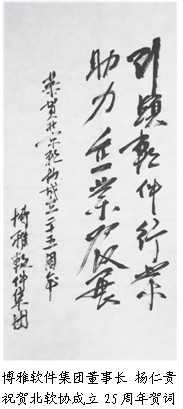 引领软件行业
助力兵業發展
恭贺北京软协成立二十五周年
博雅软件集团
博雅软件集团董事长 杨仁贵
祝贺北软协成立 25 周年贺词